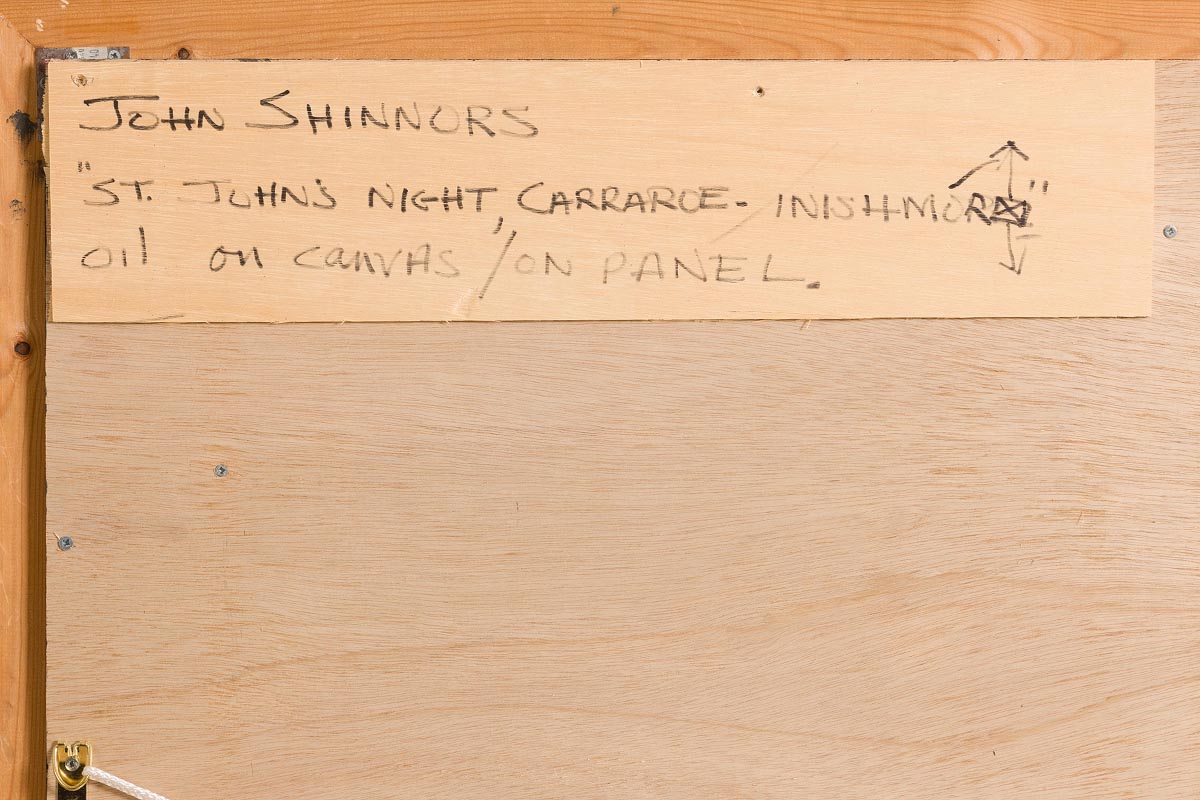 JOHN SHINNORS
"ST. JOHN'S NIGHT, CARRAROE - INISHMOR"
oil on canvas / ON PANEL.